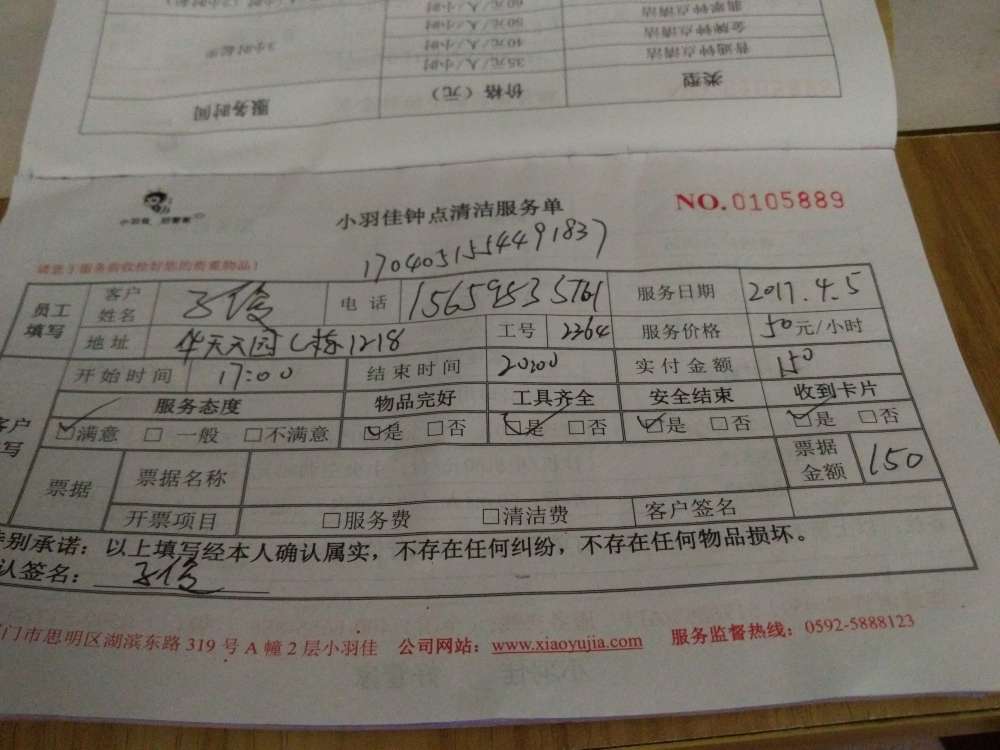 类型 价格（元） 服务时间
普通钟点清洁 35元/人/小时
金牌钟点清洁 40元/人/小时 3小时起做
50元/人/小时
60元/人/小时
小羽佳钟点清洁服务单
NO.0105889
1704051554491837
请您于服务前收检好您的贵重物品！
员工填写 客户姓名 电话 15659535761 服务日期 2017.4.5
地址 华天花园C栋1218 工号 2264 服务价格 50元/小时
开始时间 17:00 结束时间 20:00 实付金额 150
服务态度 物品完好 工具齐全 安全结束 收到卡片
☑满意 □一般 □不满意 ☑是 □否 ☑是 □否 ☑是 □否 ☑是 □否
票据 票据名称 票据金额 150
开票项目 □服务费 □清洁费 客户签名
特别承诺：以上填写经本人确认属实，不存在任何纠纷，不存在任何物品损坏。
认签名：
门市思明区湖滨东路 319 号 A 幢 2 层小羽佳 公司网站：www.xiaoyujia.com 服务监督热线：0592-5888123